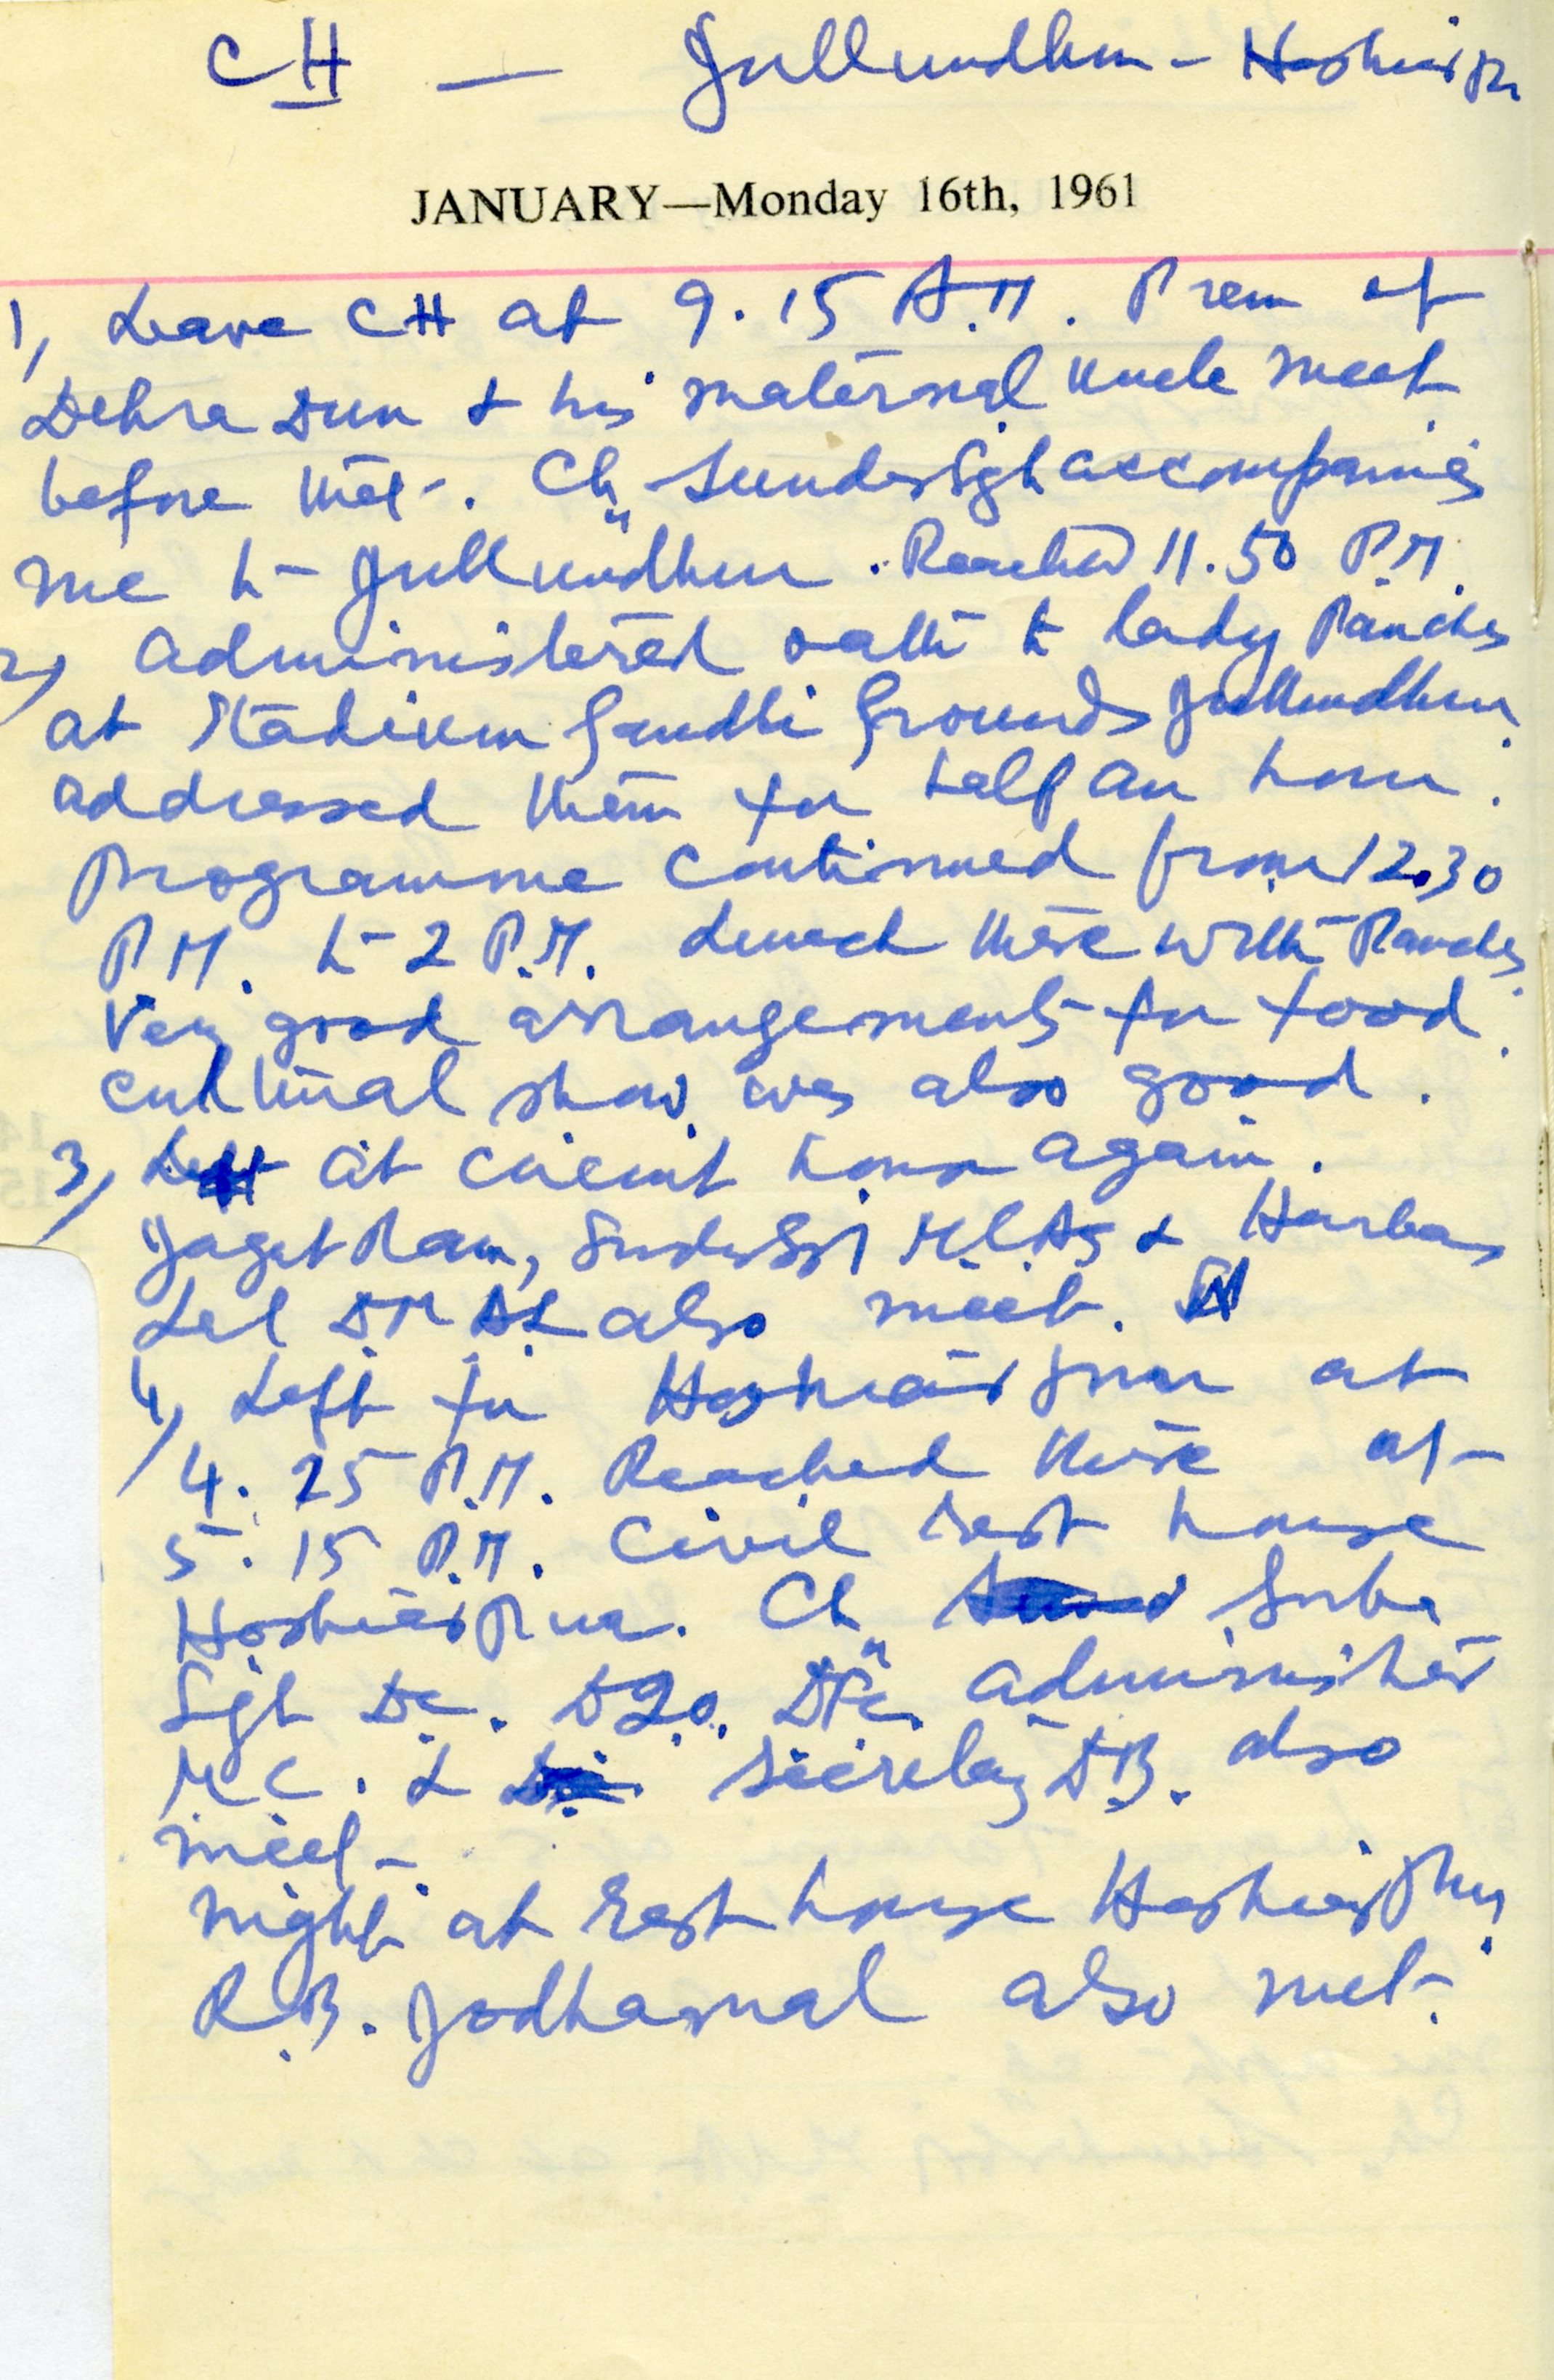 CH — Jullundhur - Hoshiarpur
JANUARY—Monday 16th, 1961
1, Leave CH at 9.15 A.M. Prem of
Dehra Dun & his maternal uncle meet
before that. Ch. Sunder Sgh accompanies
me to Jullundhur. Reached 11.50 P.M.
2, Administered oath to lady Panches
at Stadium Gandhi Grounds Jullundhur.
addressed them for half an hour.
Programme continued from 12.30
P.M. to 2 P.M. Lunch there with Panches.
Very good arrangements for food.
cultural show was also good.
3, at circuit house again.
Jagat Ram, Sunder Sgh M.L.As & Harbans
Lal D.M. also meet.
4, Left for Hoshiarpur at
4.25 P.M. Reached there at
5.15 P.M. Civil rest house
Hoshiarpur. Ch. Surba
Sgh D.C. administer
M.C. & Secretary D.B. also
meet.
night at rest house Hoshiarpur.
R.B. Jodhamal also met.